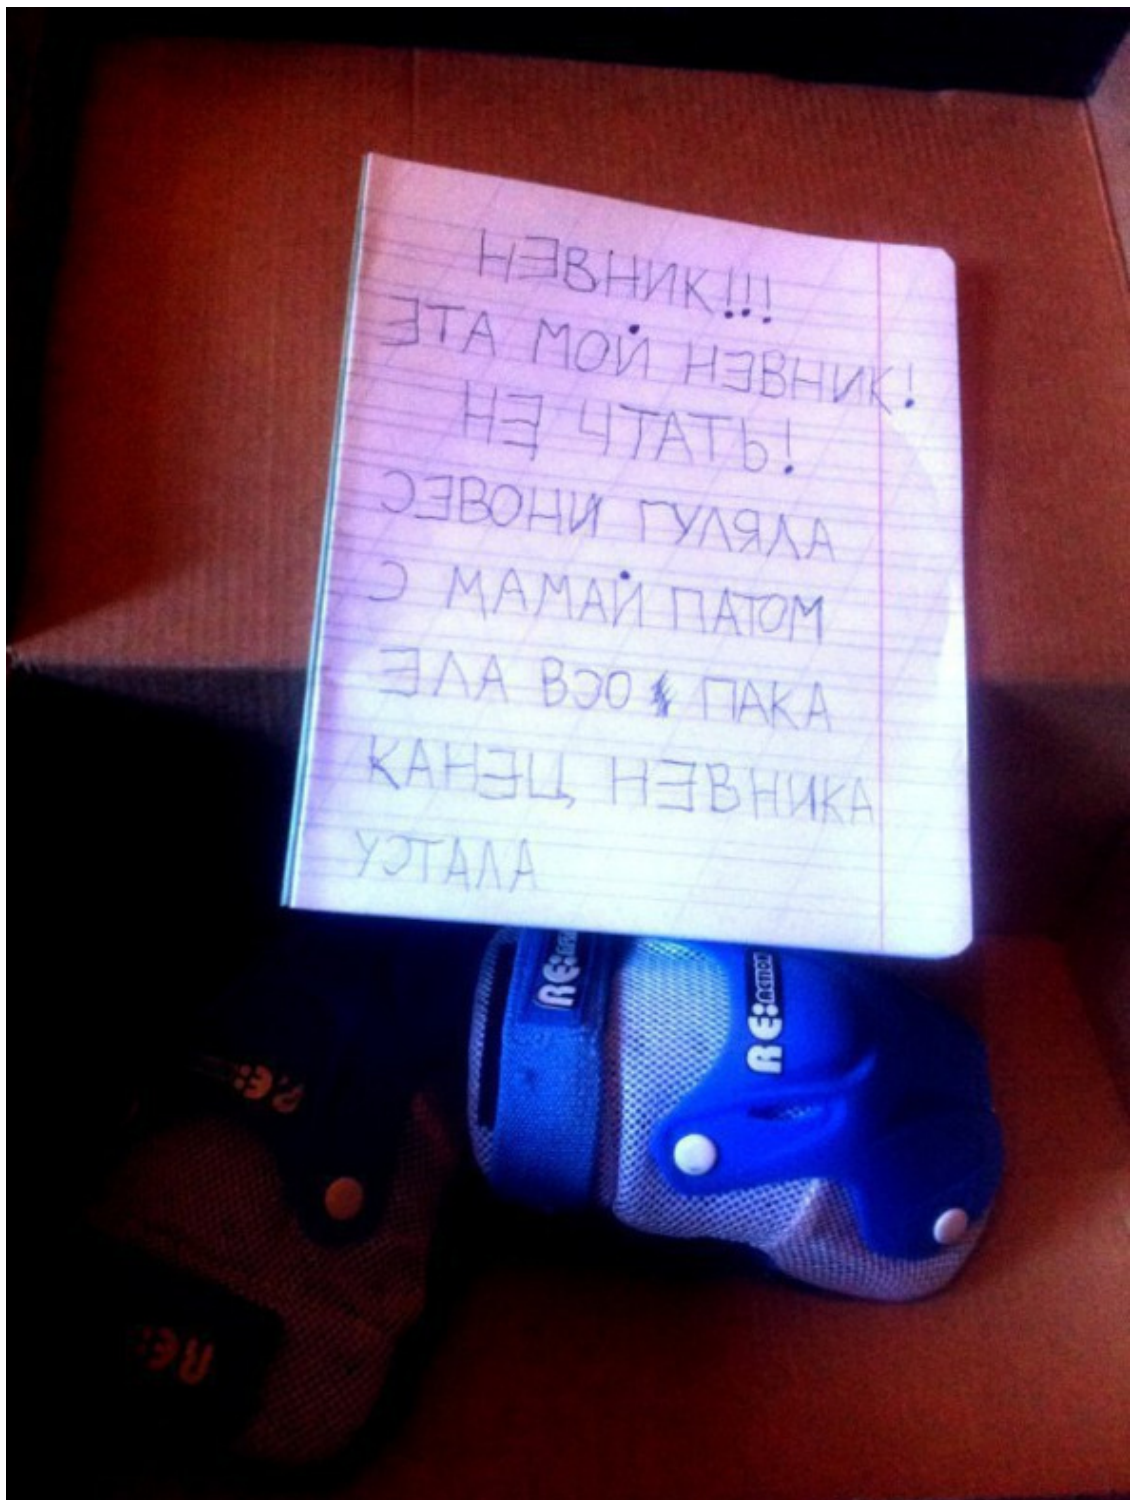 НЭВНИК!!!
ЭТА МОЙ НЭВНИК!
НЭ ЧТАТЬ!
ЭЭВОНИ ГУЛЯЛА
С МАМАЙ ПАТОМ
ЭЛА ВЭО ПАКА
КАНЭЦ НЭВНИКА
УЭТАЛА
RE:
RE:ACTION
RE:
RE: